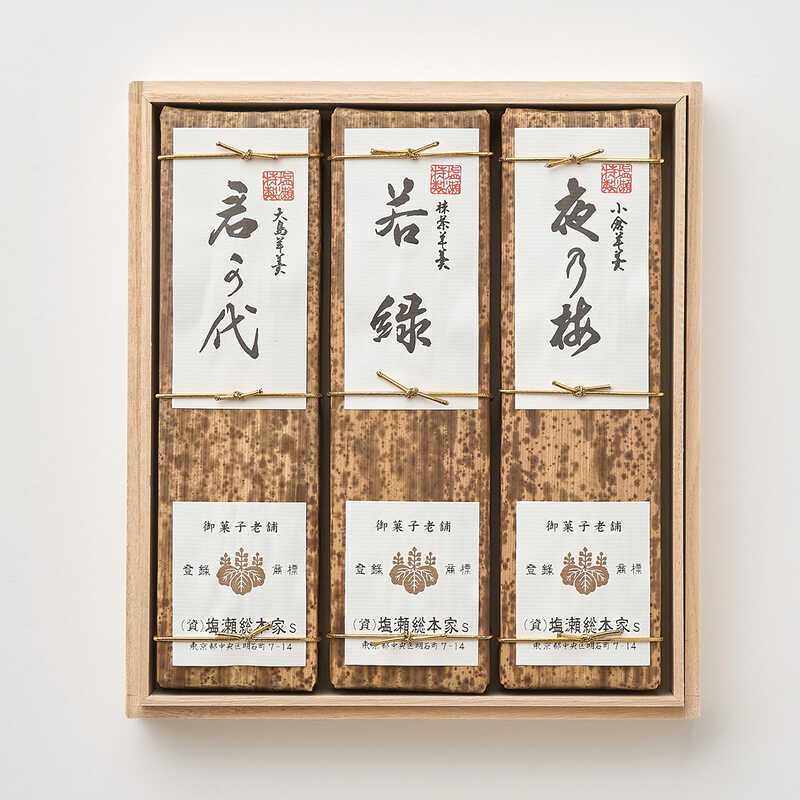 夜乃梅
小倉羊羹
塩瀬特製
若緑
抹茶羊羹
塩瀬特製
君が代
大島羊羹
塩瀬特製
御菓子老舗
登録 商標
(資)塩瀬総本家S
東京都中央区明石町7-14
御菓子老舗
登録 商標
(資)塩瀬総本家S
東京都中央区明石町7-14
御菓子老舗
登録 商標
(資)塩瀬総本家S
東京都中央区明石町7-14